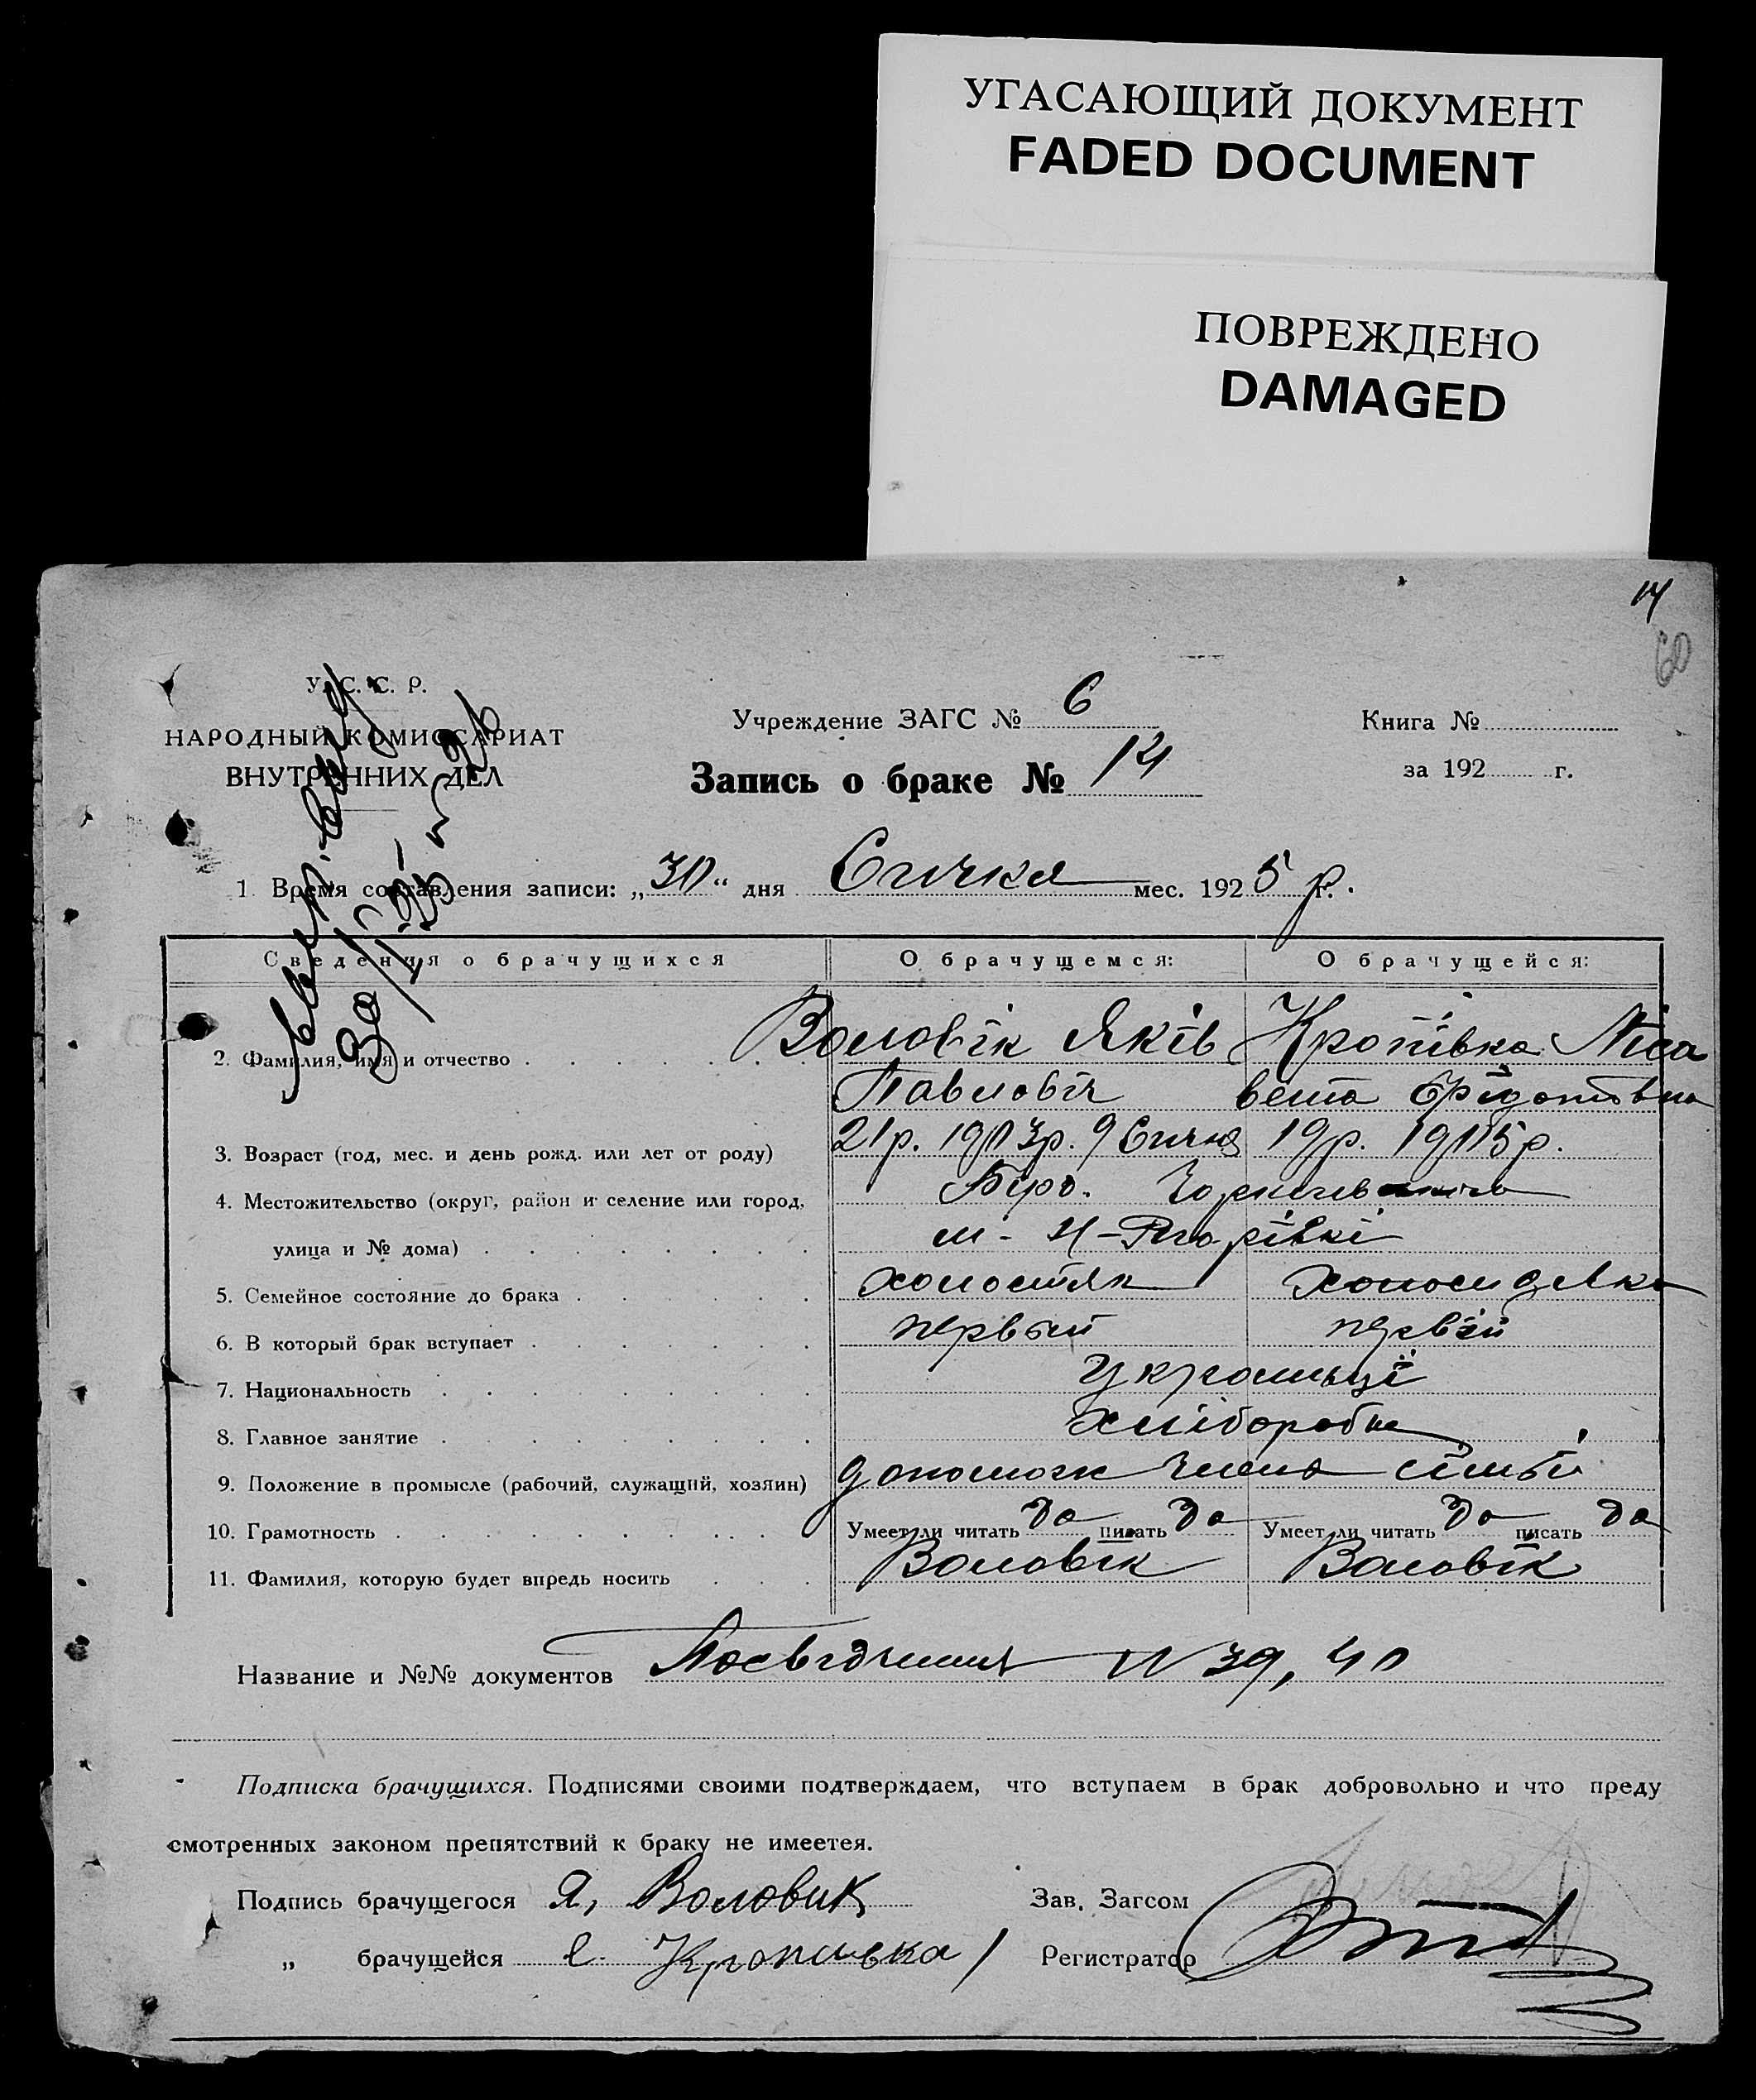 УГАСАЮЩИЙ ДОКУМЕНТ
FADED DOCUMENT
ПОВРЕЖДЕНО
DAMAGED
14
60
У. С. С. Р.
НАРОДНЫЙ КОМИССАРИАТ
ВНУТРЕННИХ ДЕЛ
Учреждение ЗАГС № 6
Запись о браке № 14
Книга №
за 192 г.
1. Время составления записи: „30“ дня Січня мес. 1925 р.
Сведения о брачущихся О брачущемся: О брачущейся:
2. Фамилия, имя и отчество Воловік Яків Кропівка Ліса
Павловіч вета
3. Возраст (год, мес. и день рожд. или лет от роду) 21р. 1903р. 9 Січня 19р. 1905р.
4. Местожительство (округ, район и селение или город,
улица и № дома)
5. Семейное состояние до брака холостяк
6. В который брак вступает первый первій
7. Национальность Українці
8. Главное занятие хлібороби
9. Положение в промысле (рабочий, служащий, хозяин) сімьі
10. Грамотность Умеет ли читать да писать да Умеет ли читать да писать да
11. Фамилия, которую будет впредь носить Воловік Воловік
Название и №№ документов Посвідчення N 39, 40
Подписка брачущихся. Подписями своими подтверждаем, что вступаем в брак добровольно и что преду
смотренных законом препятствий к браку не имеетея.
Подпись брачущегося Я, Воловик Зав. Загсом
„ брачущейся Кропивка Регистратор